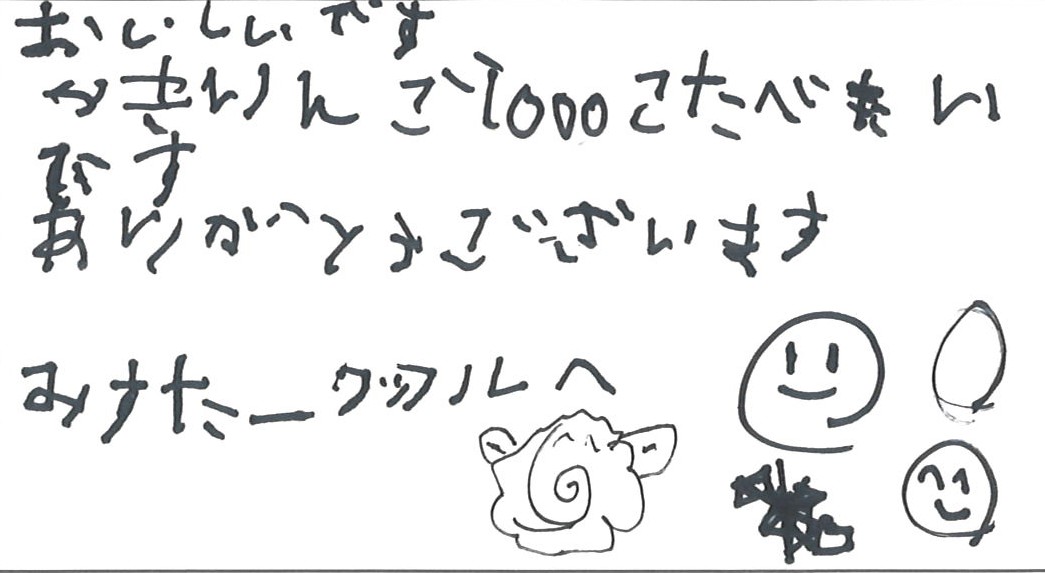 おいしいです
やきりんご1000こたべまい
です
ありがとうございます
みすたーワッフルへ